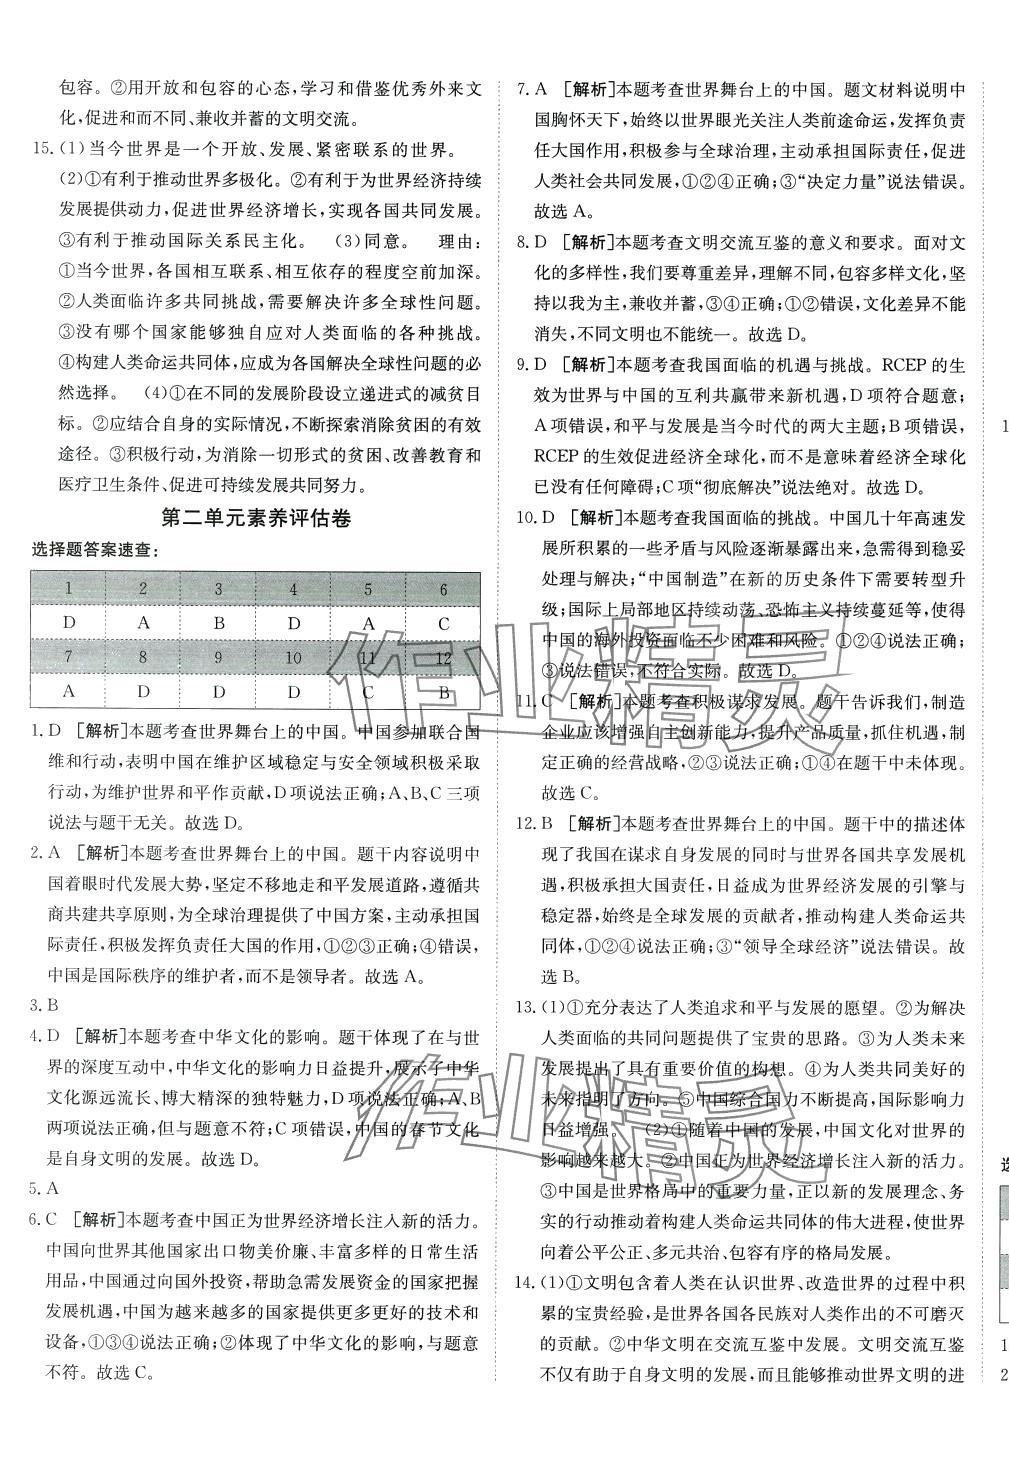 包容。②用开放和包容的心态,学习和借鉴优秀外来文
化,促进和而不同、兼收并蓄的文明交流。
15.(1)当今世界是一个开放、发展、紧密联系的世界。
(2)①有利于推动世界多极化。②有利于为世界经济持续
发展提供动力,促进世界经济增长,实现各国共同发展。
③有利于推动国际关系民主化。 (3)同意。 理由:
①当今世界,各国相互联系、相互依存的程度空前加深。
②人类面临许多共同挑战,需要解决许多全球性问题。
③没有哪个国家能够独自应对人类面临的各种挑战。
④构建人类命运共同体,应成为各国解决全球性问题的必
然选择。 (4)①在不同的发展阶段设立递进式的减贫目
标。②应结合自身的实际情况,不断探索消除贫困的有效
途径。③积极行动,为消除一切形式的贫困、改善教育和
医疗卫生条件、促进可持续发展共同努力。
第二单元素养评估卷
选择题答案速查:
1 2 3 4 5 6
D A B D A C
7 8 9 10 11 12
A D D D C B
1. D [解析]本题考查世界舞台上的中国。中国参加联合国
维和行动,表明中国在维护区域稳定与安全领域积极采取
行动,为维护世界和平作贡献,D项说法正确;A、B、C三项
说法与题干无关。故选D。
2. A [解析]本题考查世界舞台上的中国。题干内容说明中
国着眼时代发展大势,坚定不移地走和平发展道路,遵循共
商共建共享原则,为全球治理提供了中国方案,主动承担国
际责任,积极发挥负责任大国的作用,①②③正确;④错误,
中国是国际秩序的维护者,而不是引领者。故选A。
3. B
4. D [解析]本题考查中华文化的影响。题干体现了在与世
界的深度互动中,中华文化的影响力日益提升,展示了中华
文化源远流长、博大精深的独特魅力,D项说法正确;A、B
两项说法正确,但与题意不符;C项错误,中国的春节文化
是自身文明的发展。故选D。
5. A
6. C [解析]本题考查中国正为世界经济增长注入新的活力。
中国向世界其他国家出口物美价廉、丰富多样的日常生活
用品,中国通过向国外投资,帮助急需发展资金的国家把握
发展机遇,中国为越来越多的国家提供更多更好的技术和
设备,①③④说法正确;②体现了中华文化的影响,与题意
不符。故选C。
7. A [解析]本题考查世界舞台上的中国。题文材料说明中
国胸怀天下,始终以世界眼光关注人类前途命运,发挥负责
任大国作用,积极参与全球治理,主动承担国际责任,促进
人类社会共同发展,①②④正确;③“决定力量”说法错误。
故选A。
8. D [解析]本题考查文明交流互鉴的意义和要求。面对文
化的多样性,我们要尊重差异,理解不同,包容多样文化,坚
持以我为主,兼收并蓄,③④正确;①②错误,文化差异不能
消失,不同文明也不能统一。故选D。
9. D [解析]本题考查我国面临的机遇与挑战。RCEP的生
效为世界与中国的互利共赢带来新机遇,D项符合题意;
A项错误,和平与发展是当今时代的两大主题;B项错误,
RCEP的生效促进经济全球化,而不是意味着经济全球化
已没有任何障碍;C项“彻底解决”说法绝对。故选D。
10. D [解析]本题考查我国面临的挑战。中国几十年高速发
展所积累的一些矛盾与风险逐渐暴露出来,亟须得到稳妥
处理与解决;“中国制造”在新的历史条件下需要转型升
级;国际上局部地区持续动荡、恐怖主义持续蔓延等,使得
中国的海外投资面临不少困难和风险。①②④说法正确;
③说法错误,不符合实际。故选D。
11. C [解析]本题考查积极谋求发展。题干告诉我们,制造
企业应该增强自主创新能力,提升产品质量,抓住机遇,制
定正确的经营战略,②③说法正确;①④在题干中未体现。
故选C。
12. B [解析]本题考查世界舞台上的中国。题干中的描述体
现了我国在谋求自身发展的同时与世界各国共享发展机
遇,积极承担大国责任,日益成为世界经济发展的引擎与
稳定器,始终是全球发展的贡献者,推动构建人类命运共
同体,①②④说法正确;③“领导全球经济”说法错误。故
选B。
13.(1)①充分表达了人类追求和平与发展的愿望。②为解决
人类面临的共同问题提供了宝贵的思路。③为人类未来
发展提出了具有重要价值的构想。④为人类共同美好的
未来指明了方向。⑤中国综合国力不断提高,国际影响力
日益增强。 (2)①随着中国的发展,中国文化对世界的
影响越来越大。②中国正为世界经济增长注入新的活力。
③中国是世界格局中的重要力量,正以新的发展理念、务
实的行动推动着构建人类命运共同体的伟大进程,使世界
向着公平公正、多元共治、包容有序的格局发展。
14.(1)①文明包含着人类在认识世界、改造世界的过程中积
累的宝贵经验,是世界各国各民族对人类作出的不可磨灭
的贡献。②中华文明在交流互鉴中发展。文明交流互鉴
不仅有助于自身文明的发展,而且能够推动世界文明的进
作业精灵
作业精灵
1
1
2